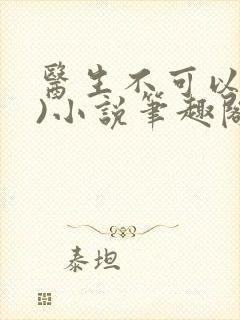 醫生不可以
)小說筆趣閣
泰坦